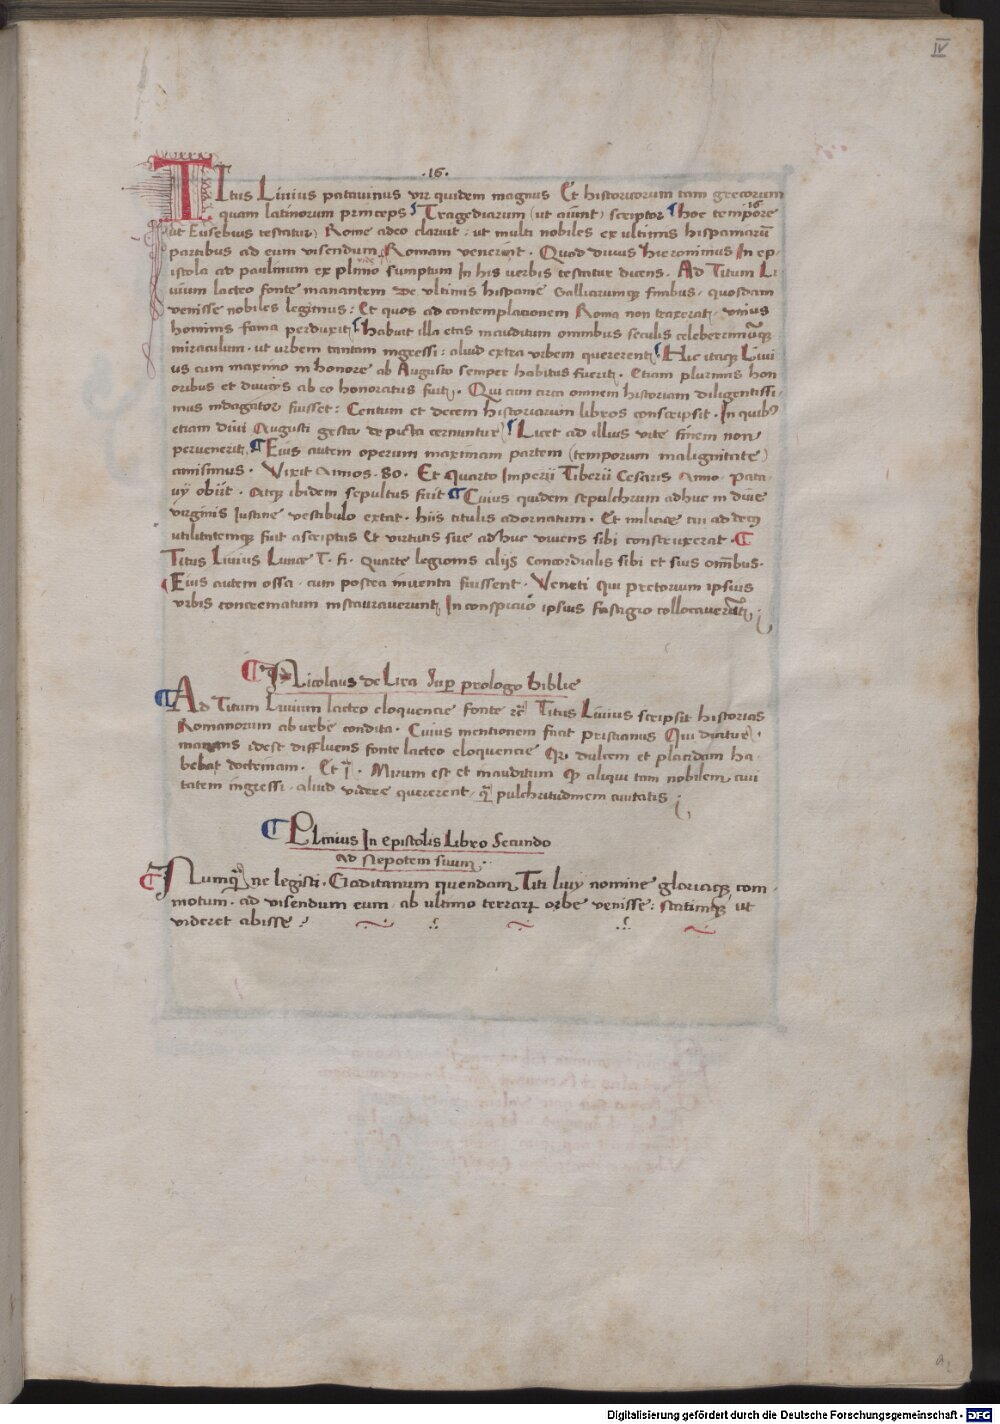 IV
.16.
TItus Liuius patauinus vir quidem magnus Et historicorum tam grecorum
quam latinorum princeps Tragediarum (ut aiunt) scriptor hoc tempore 16
(ut Eusebius testatur) Rome adeo claruit : ut multi nobiles ex ultimis hispaniarū
partibus ad eum visendum Romam venerint . Quod diuus hieronimus In ep-
istola ad paulinum ex plinio sumptum In his verbis testatur dicens . Ad Titum Li
uium lacteo fonte manantem de vltimis hispanie Galliarumque finibus . quosdam
venisse nobiles legimus : Et quos ad contemplacionem Roma non traxerat . vnius
hominis fama perduxit Habuit illa etas inauditum omnibus seculis celeberrimūque
miraculum . ut urbem tantam ingressi : aliud extra vrbem quererent Hic itaque Liui
us cum maximo in honore ab Augusto semper habitus fuerit . Etiam plurimis hon
oribus et diuicijs ab eo honoratus fuit . Qui cum circa omnem historiam diligentissi-
mus indagator fuisset : Centum et decem historiarum libros conscripsit . In quibus
etiam diui Augusti gesta depicta cernuntur Licet ad illius vite finem non
peruenerit . Eius autem operum maximam partem (temporum malignitate)
amisimus . Vixit Annos . 80 . Et Quarto Imperii Tiberii Cesaris Anno . Pata-
uij obiit . Atque ibidem sepultus fuit Cuius quidem sepulchrum adhuc in diue
virginis Iustine vestibulo extat . hiis titulis adornatum . Et
utilitatemque fuit ascriptus Et virtutis sue adhuc viuens sibi construxerat .
Titus Liuius Liuie T . fi . Quarte legionis alijs Concordialis sibi et suis omībus .
Eius autem ossa . cum postea inuenta fuissent . Veneti qui pretorum ipsius
vrbis concrematum instaurauerunt In conspicuo ipsius fastigio collocauerūt
Nicolaus de Lira Sup prologo biblie
Ad Titum Liuium lacteo eloquencie fonte rc Titus Liuius scripsit historias
Romanorum ab vrbe condita . Cuius mentionem facit Priscianus Qui dicitur .
manans idest diffluens fonte lacteo eloquencie Qr dulcem et placidam ha-
bebat doctrinam . Et . Mirum est et inauditum qp aliqui tam nobilem ciui
tatem ingressi . aliud videre quererent . q̄ pulchritudinem ciuitatis
Plinius In epistolis Libro Secundo
ad Nepotem suum . .
Numq̄ ne legisti . Gaditanum quendam Titi liuij nomine gloriaque com-
motum . ad visendum eum . ab ultimo terrarum orbe venisse : statimque ut
videret abisse
a
Digitalisierung gefördert durch die Deutsche Forschungsgemeinschaft - DFG